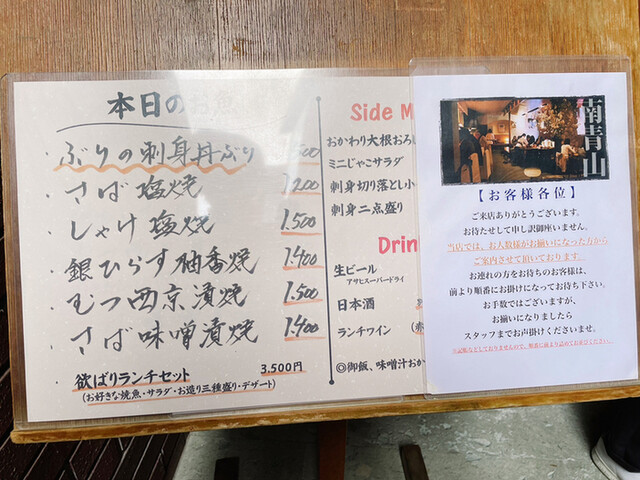 本日のお魚
ぶりの刺身丼ぶり
さば塩焼 1.200
しゃけ塩焼 1.500
銀ひらす柚香焼 1.400
むつ西京漬焼 1.500
さば味噌漬焼 1.400
欲ばりランチセット 3,500円
(お好きな焼魚・サラダ・お造り三種盛り・デザート)
Side M
おかわり大根おろし
ミニじゃこサラダ
刺身切り落とし小
刺身二点盛り
Drin
生ビール
アサヒスーパードライ
日本酒
ランチワイン (赤
◎御飯、味噌汁おか
南青山
【お客様各位】
ご来店ありがとうございます。
お待たせして申し訳御座いません。
当店では、お人数様がお揃いになった方から
ご案内させて頂いております。
お連れの方をお待ちのお客様は、
前より順番にお掛けになってお待ち下さい。
お手数ではございますが、
お揃いになりましたら
スタッフまでお声掛けくださいませ。